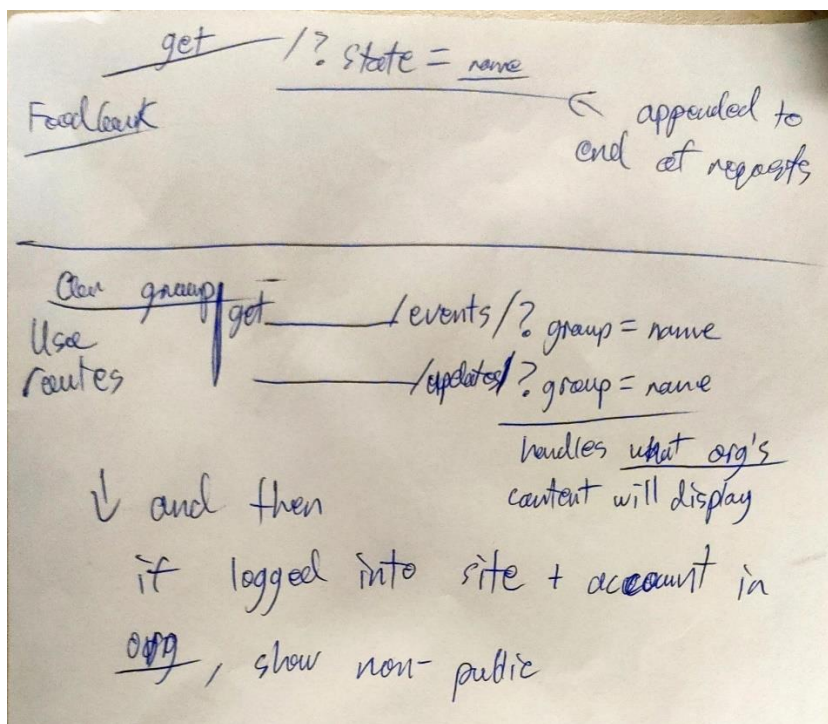 get /? state = name
Foodbank
← appended to
end of requests
Our group
get /events/? group = name
Use
routes
/updates/? group = name
handles what org's
content will display
↓ and then
if logged into site + account in
org, show non-public